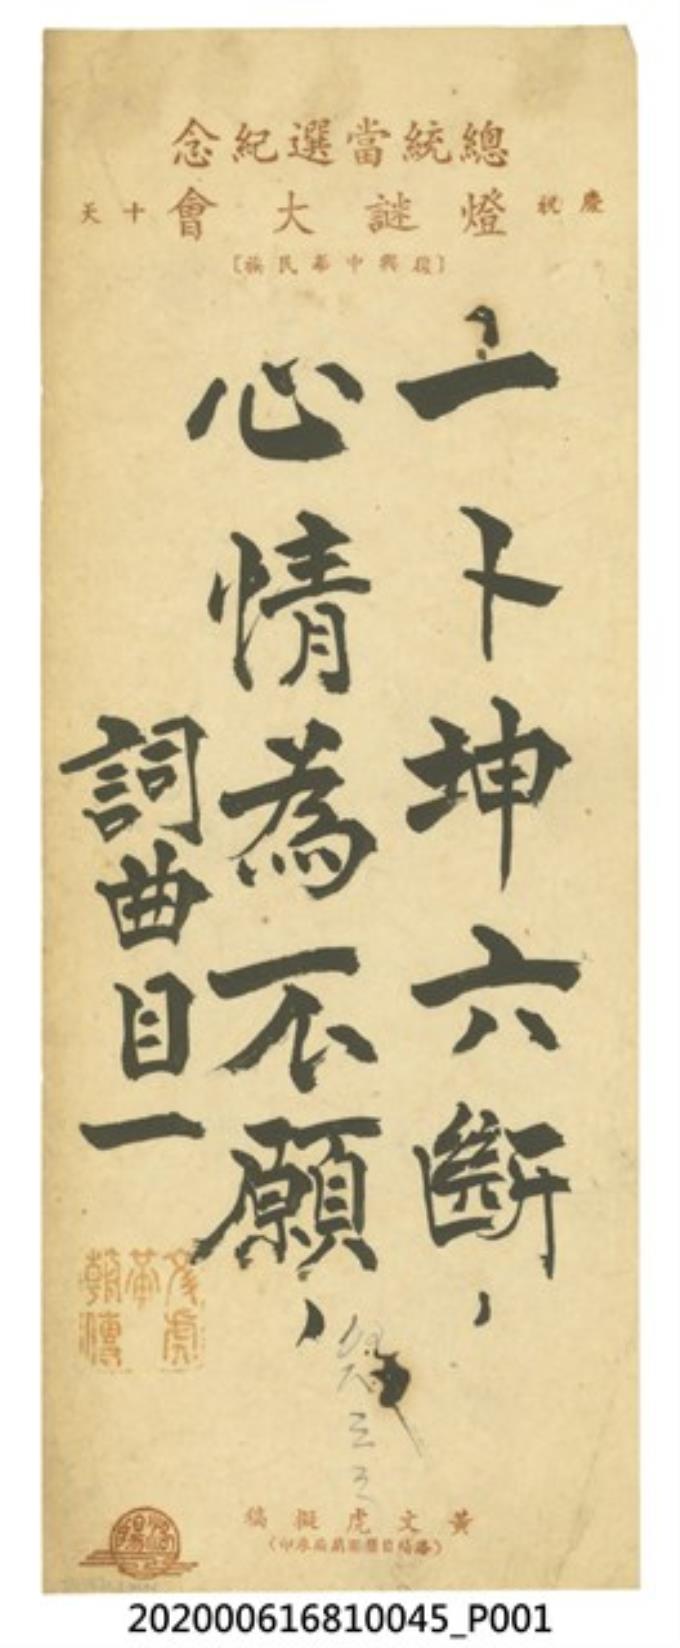 總統當選紀念
慶祝 燈謎大會 十天
〔復興中華民族〕
一卜坤六斷，
心情為不願，
詞曲目一
黃文虎擬稿
202000616810045_P001